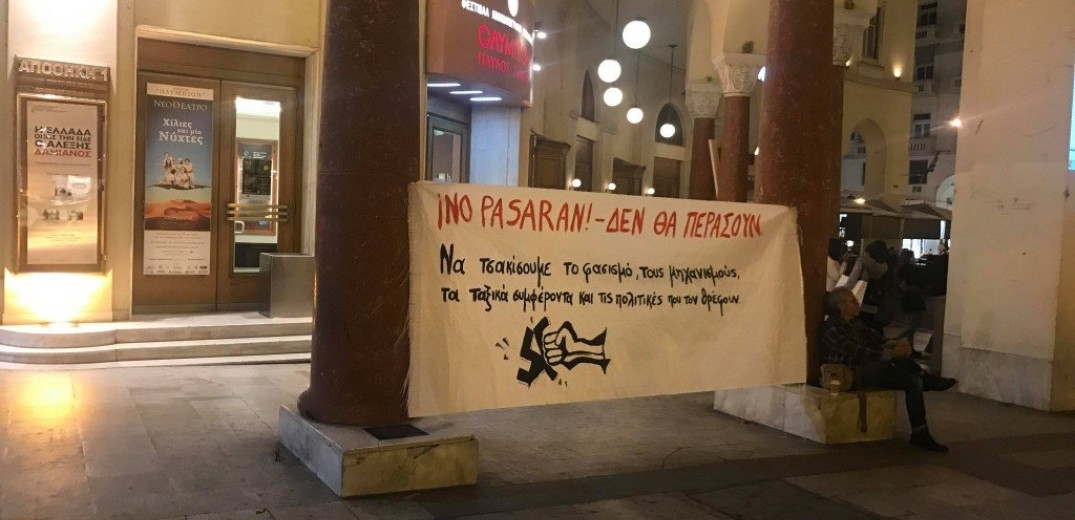 ΑΠΟΘΗΚΗ
Η ΕΛΛΑΔΑ
ΟΠΩΣ ΤΗΝ ΕΙΔΕ
Ο ΑΛΕΞΗΣ
ΔΑΜΙΑΝΟΣ
"ΟΛΥΜΠΙΟΝ"
ΝΕΟ ΘΕΑΤΡΟ
Χίλιες
και μία
Νύχτες
ΦΕΣΤΙΒΑΛ
¡NO PASARAN! - ΔΕΝ ΘΑ ΠΕΡΑΣΟΥΝ
Να τσακίσουμε το φασισμό, τους μηχανισμούς,
τα ταξικά συμφέροντα και τις πολιτικές που τον θρέφουν.